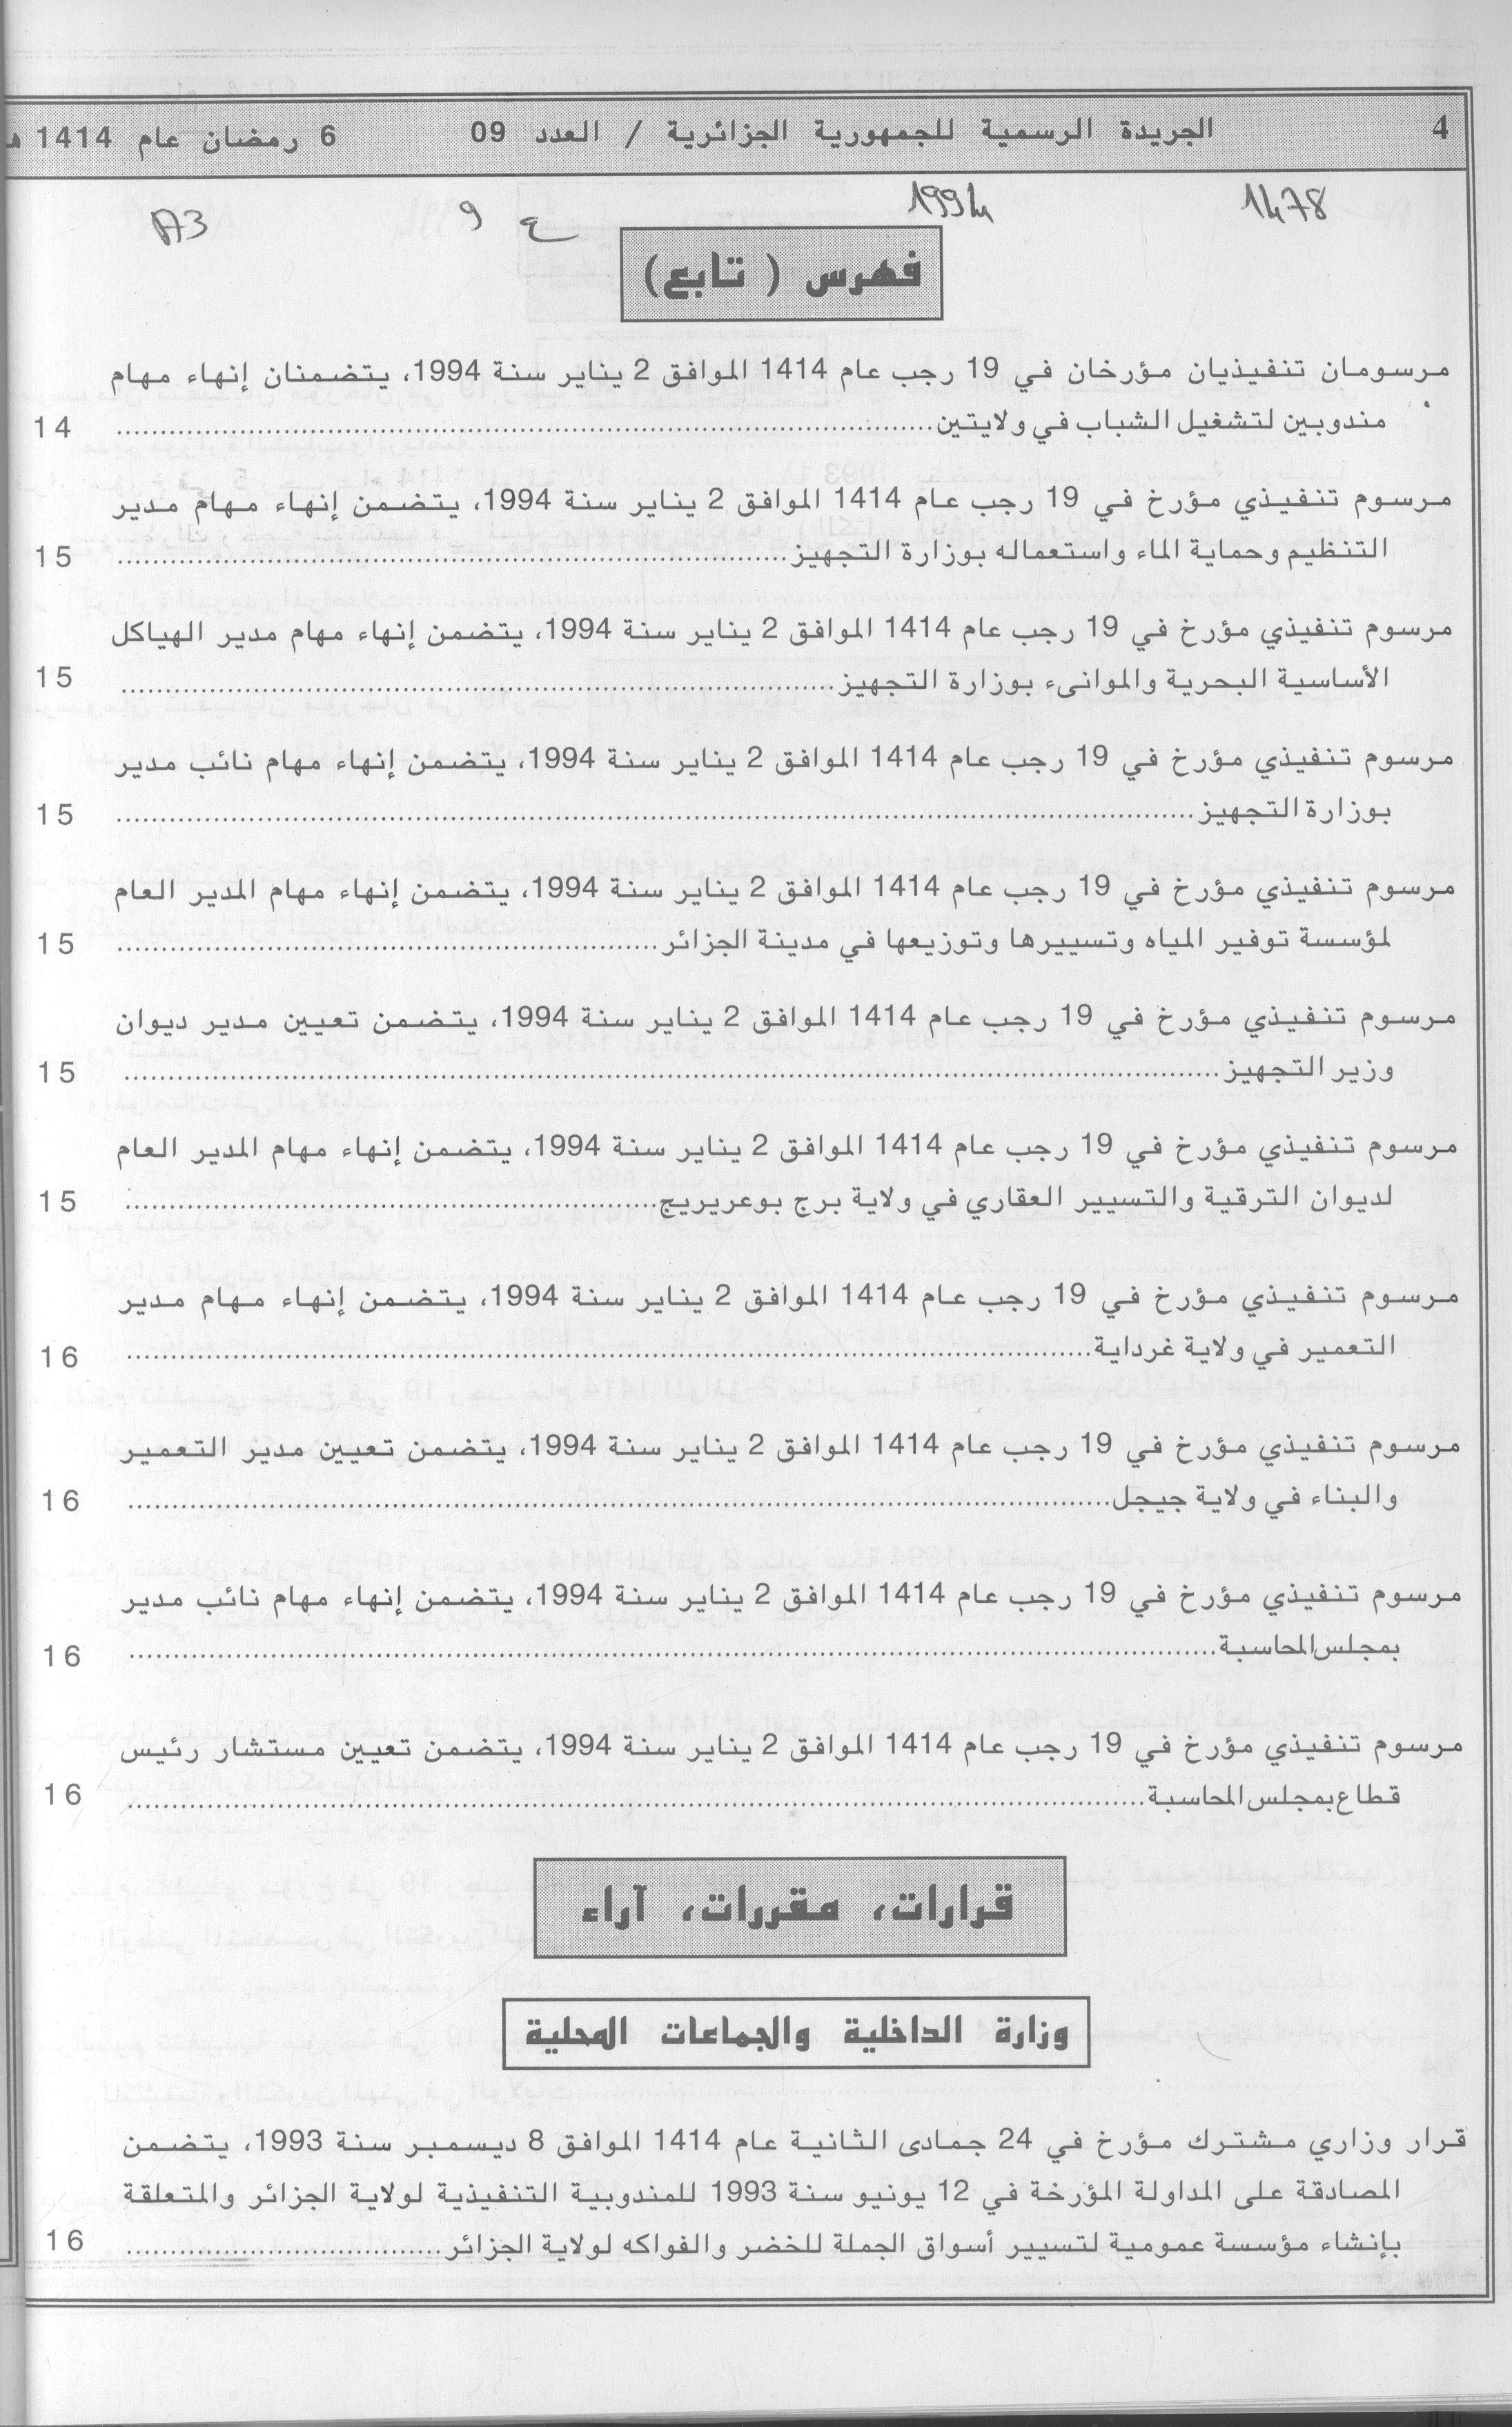 4 الجريدة الرسمية للجمهورية الجزائرية / العدد 09 6 رمضان عام 1414 هـ
1478 1994 ع 9 A3
فهرس ( تابع)
مرسومان تنفيذيان مؤرخان في 19 رجب عام 1414 الموافق 2 يناير سنة 1994، يتضمنان إنهاء مهام
مندوبين لتشغيل الشباب في ولايتين........................................ 14
مرسوم تنفيذي مؤرخ في 19 رجب عام 1414 الموافق 2 يناير سنة 1994، يتضمن إنهاء مهام مدير
التنظيم وحماية الماء واستعماله بوزارة التجهيز........................................ 15
مرسوم تنفيذي مؤرخ في 19 رجب عام 1414 الموافق 2 يناير سنة 1994، يتضمن إنهاء مهام مدير الهياكل
الأساسية البحرية والموانىء بوزارة التجهيز........................................ 15
مرسوم تنفيذي مؤرخ في 19 رجب عام 1414 الموافق 2 يناير سنة 1994، يتضمن إنهاء مهام نائب مدير
بوزارة التجهيز........................................ 15
مرسوم تنفيذي مؤرخ في 19 رجب عام 1414 الموافق 2 يناير سنة 1994، يتضمن إنهاء مهام المدير العام
لمؤسسة توفير المياه وتسييرها وتوزيعها في مدينة الجزائر........................................ 15
مرسوم تنفيذي مؤرخ في 19 رجب عام 1414 الموافق 2 يناير سنة 1994، يتضمن تعيين مدير ديوان
وزير التجهيز........................................ 15
مرسوم تنفيذي مؤرخ في 19 رجب عام 1414 الموافق 2 يناير سنة 1994، يتضمن إنهاء مهام المدير العام
لديوان الترقية والتسيير العقاري في ولاية برج بوعريريج........................................ 15
مرسوم تنفيذي مؤرخ في 19 رجب عام 1414 الموافق 2 يناير سنة 1994، يتضمن إنهاء مهام مدير
التعمير في ولاية غرداية........................................ 16
مرسوم تنفيذي مؤرخ في 19 رجب عام 1414 الموافق 2 يناير سنة 1994، يتضمن تعيين مدير التعمير
والبناء في ولاية جيجل........................................ 16
مرسوم تنفيذي مؤرخ في 19 رجب عام 1414 الموافق 2 يناير سنة 1994، يتضمن إنهاء مهام نائب مدير
بمجلس المحاسبة........................................ 16
مرسوم تنفيذي مؤرخ في 19 رجب عام 1414 الموافق 2 يناير سنة 1994، يتضمن تعيين مستشار رئيس
قطاع بمجلس المحاسبة........................................ 16
قرارات، مقررات، آراء
وزارة الداخلية والجماعات المحلية
قرار وزاري مشترك مؤرخ في 24 جمادى الثانية عام 1414 الموافق 8 ديسمبر سنة 1993، يتضمن
المصادقة على المداولة المؤرخة في 12 يونيو سنة 1993 للمندوبية التنفيذية لولاية الجزائر والمتعلقة
بإنشاء مؤسسة عمومية لتسيير أسواق الجملة للخضر والفواكه لولاية الجزائر........................................ 16